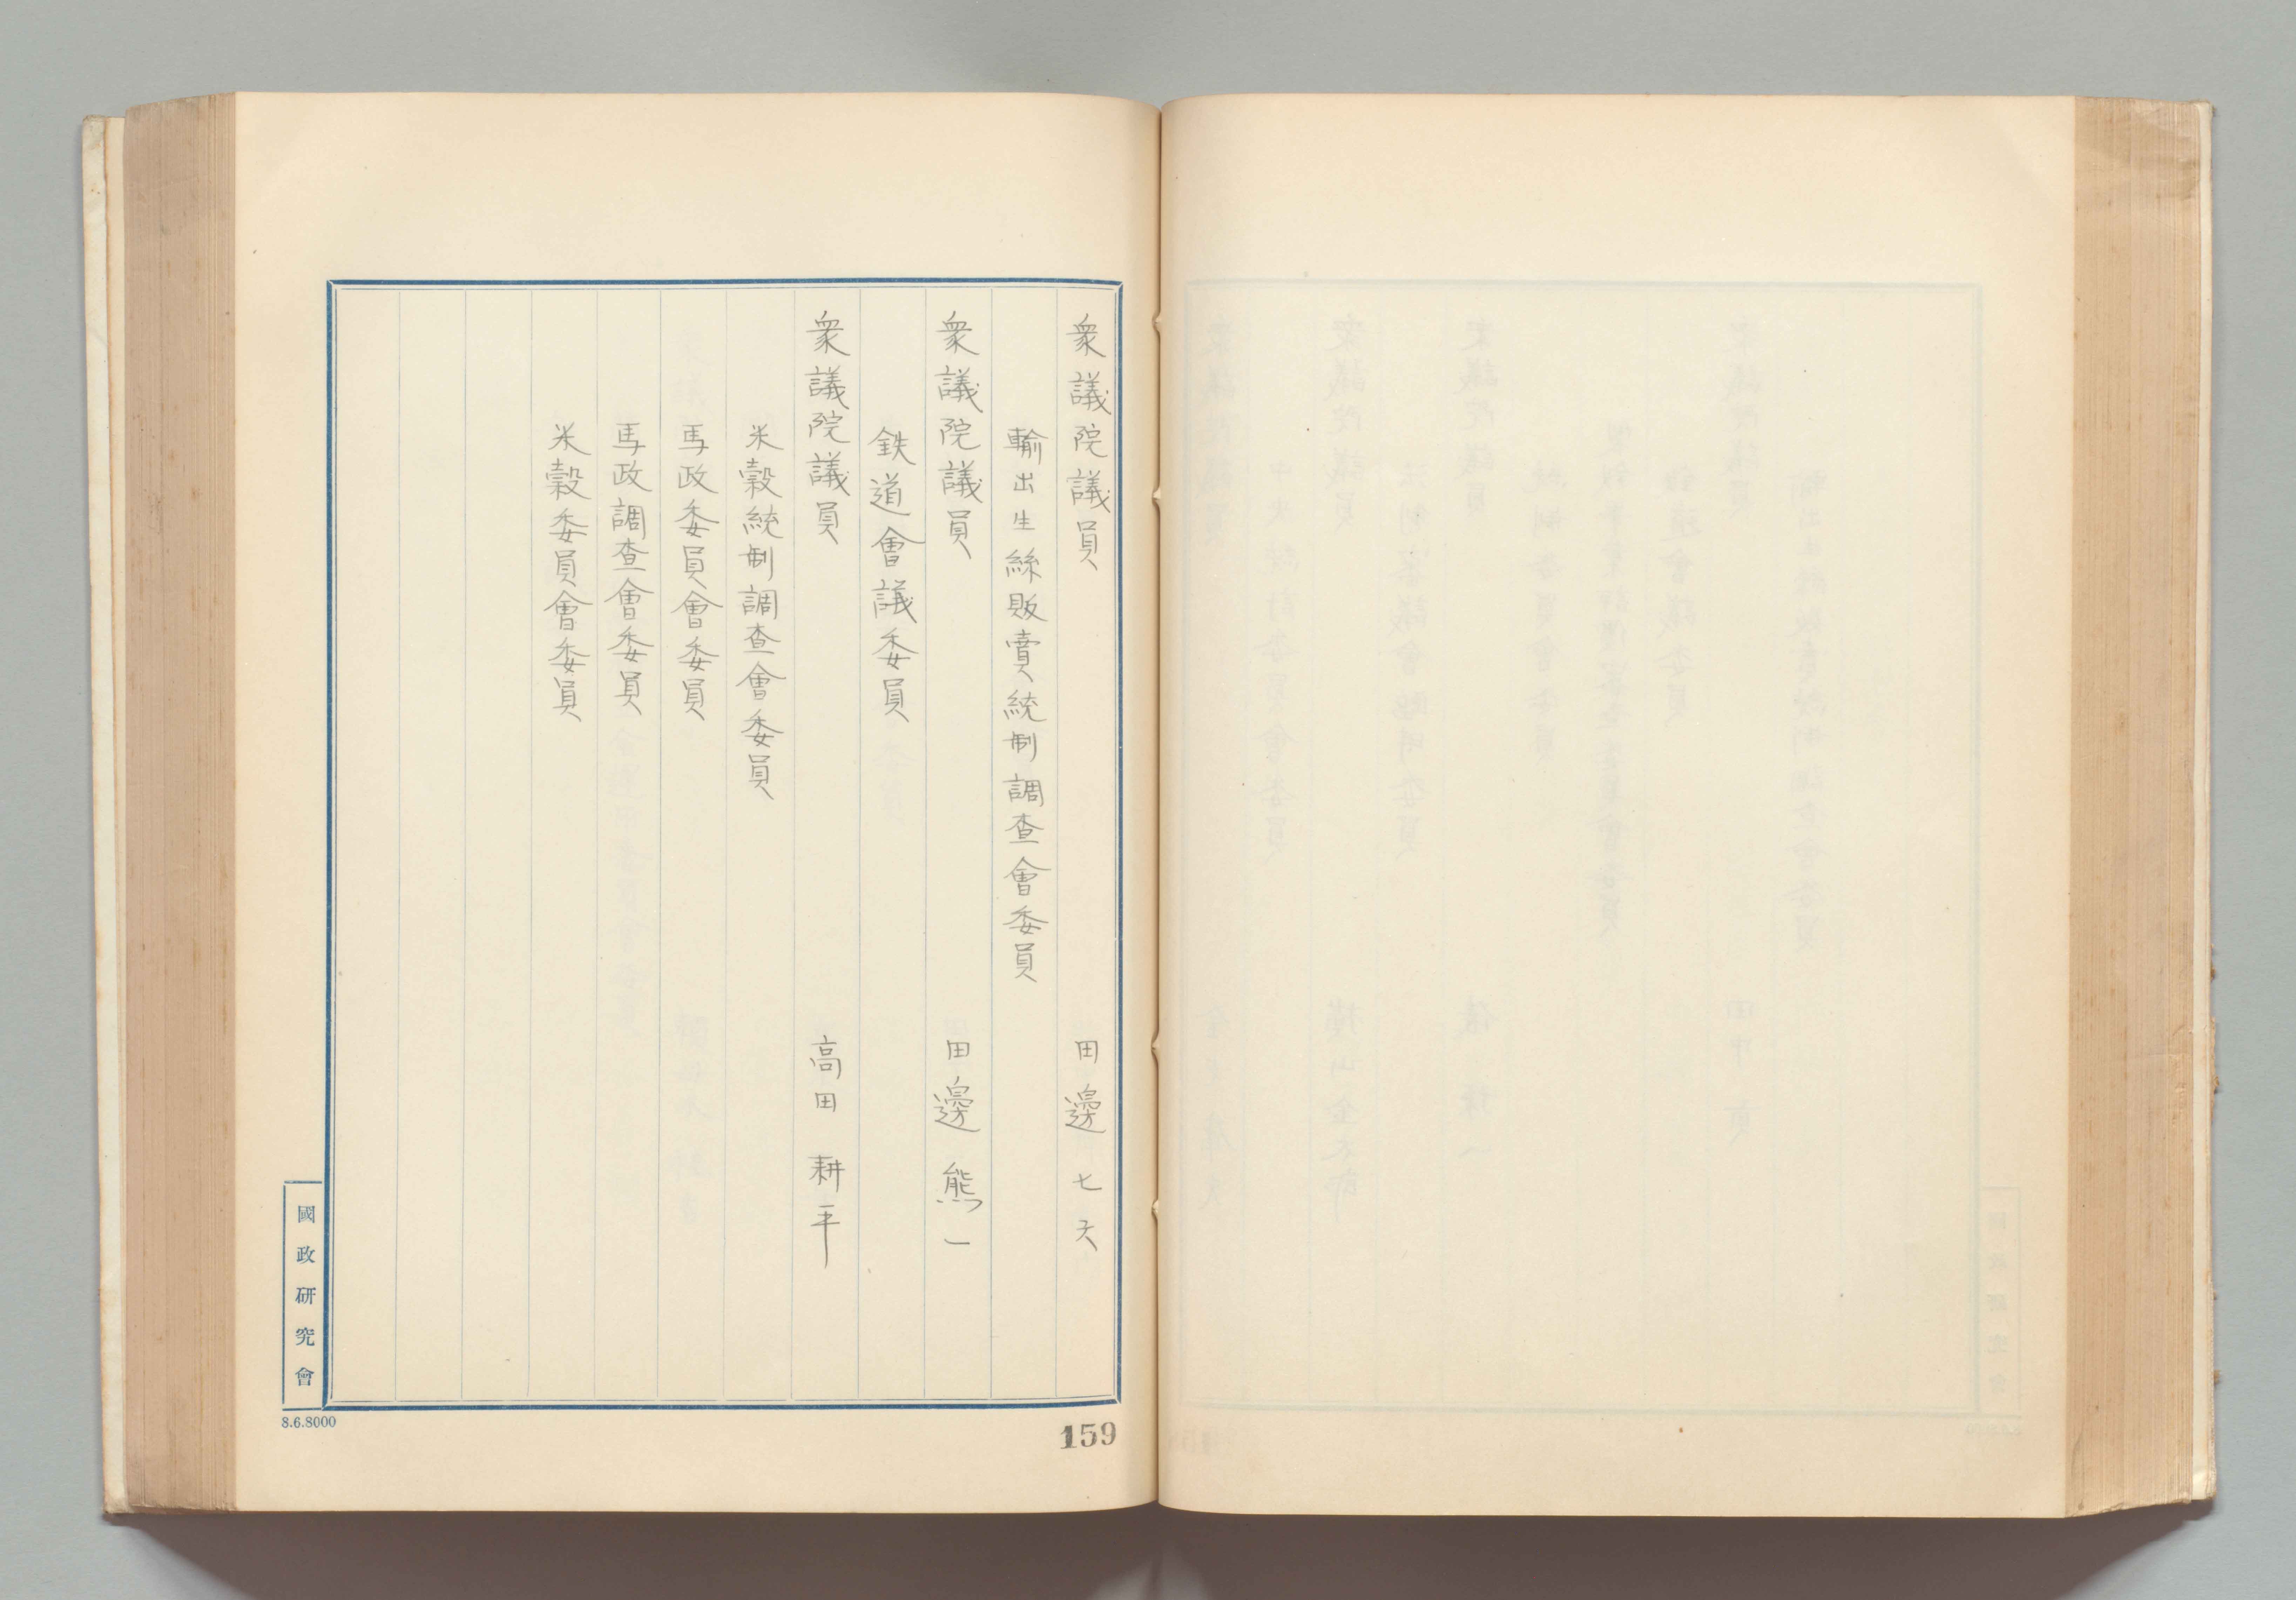 衆議院議員 田邊七六
輸出生絲販賣統制調査會委員
衆議院議員 田邊熊一
鉄道會議委員
衆議院議員 高田耕平
米穀統制調査會委員
馬政委員會委員
馬政調査會委員
米穀委員會委員
國政研究會
8.6.8000
159